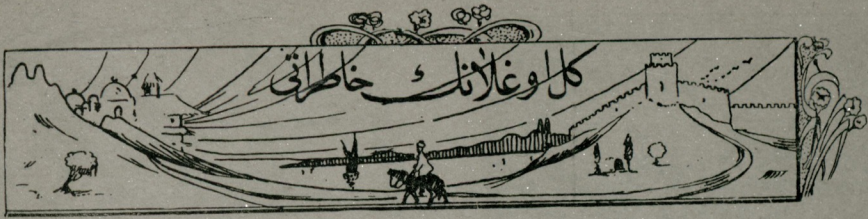 كل اوغلانك خاطراتى